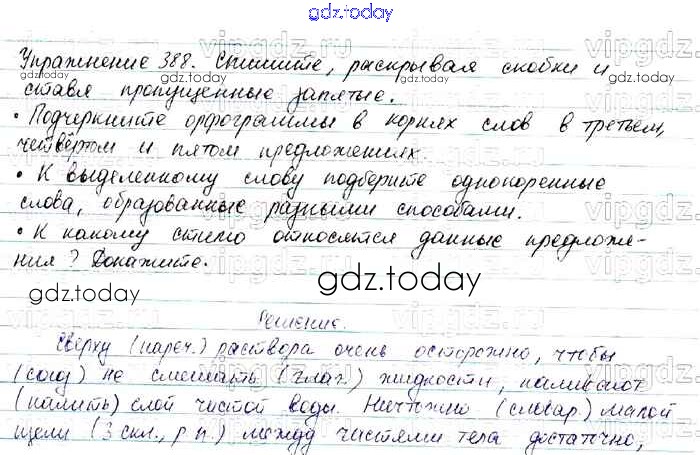 gdz.today
Упражнение 388. Спишите, раскрывая скобки и
ставя пропущенные запятые.
• Подчеркните орфограммы в корнях слов в третьем,
четвёртом и пятом предложениях.
• К выделенному слову подберите однокоренные
слова, образованные разными способами.
• К какому стилю относятся данные предложе-
ния? Докажите.
gdz.today
gdz.today
gdz.today
Решение.
Сверху (нареч.) раствора очень осторожно, чтобы
(союз) не смешать (глаг.) жидкости, наливают
(налить) слой чистой воды. Ничтожно (словар.) малой
щели (3 скл., р.п.) между частями тела достаточно,